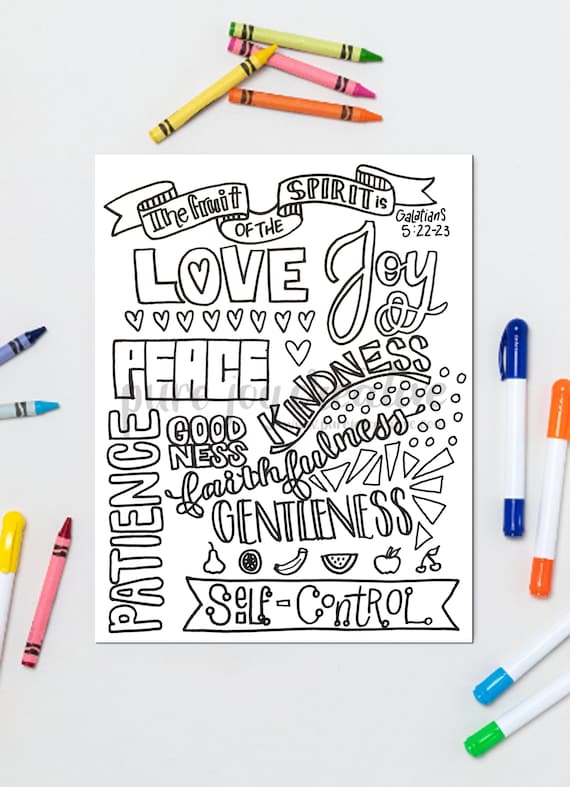 The fruit OF THE SPIRIT is
Galatians
5:22-23
LOVE
Joy
PEACE
KINDNESS
PATIENCE
GOOD
NESS
faithfulness
GENTLENESS
SELF-CONTROL
pure joy creative